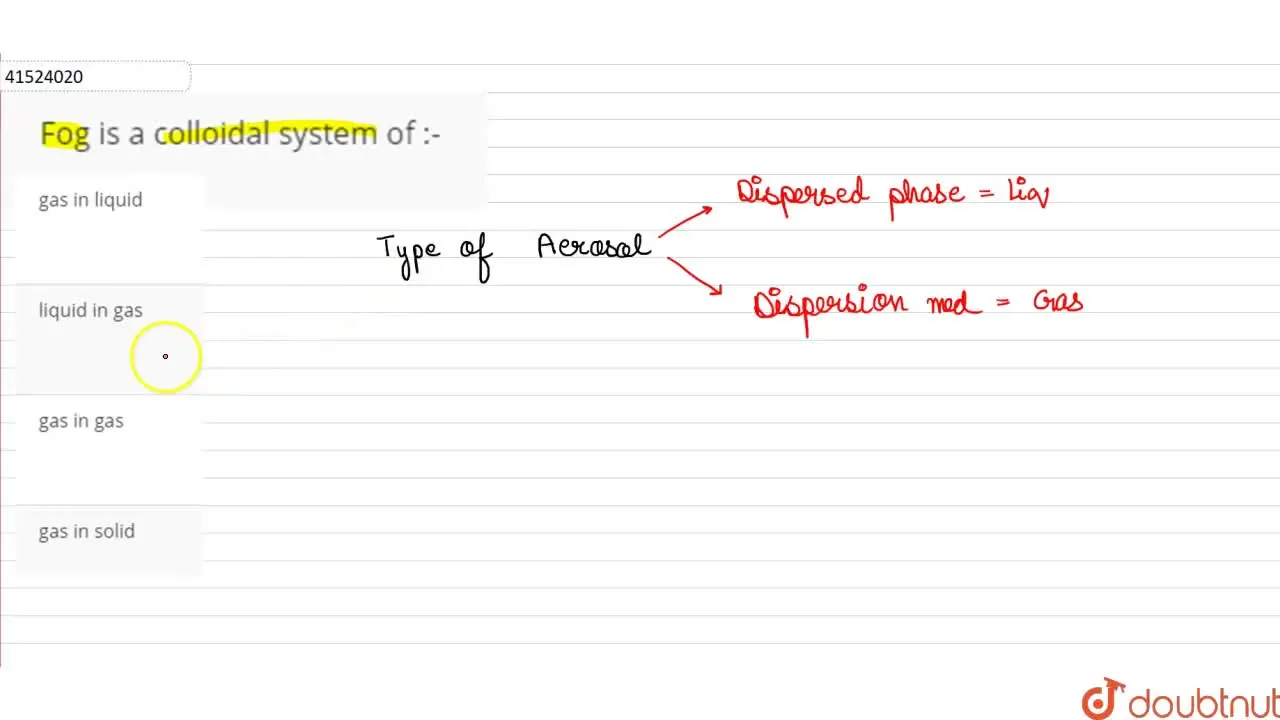 41524020
Fog is a colloidal system of :-
gas in liquid
liquid in gas
gas in gas
gas in solid
Type of Aerosol
Dispersed phase = Liq
Dispersion med = Gas
doubtnut